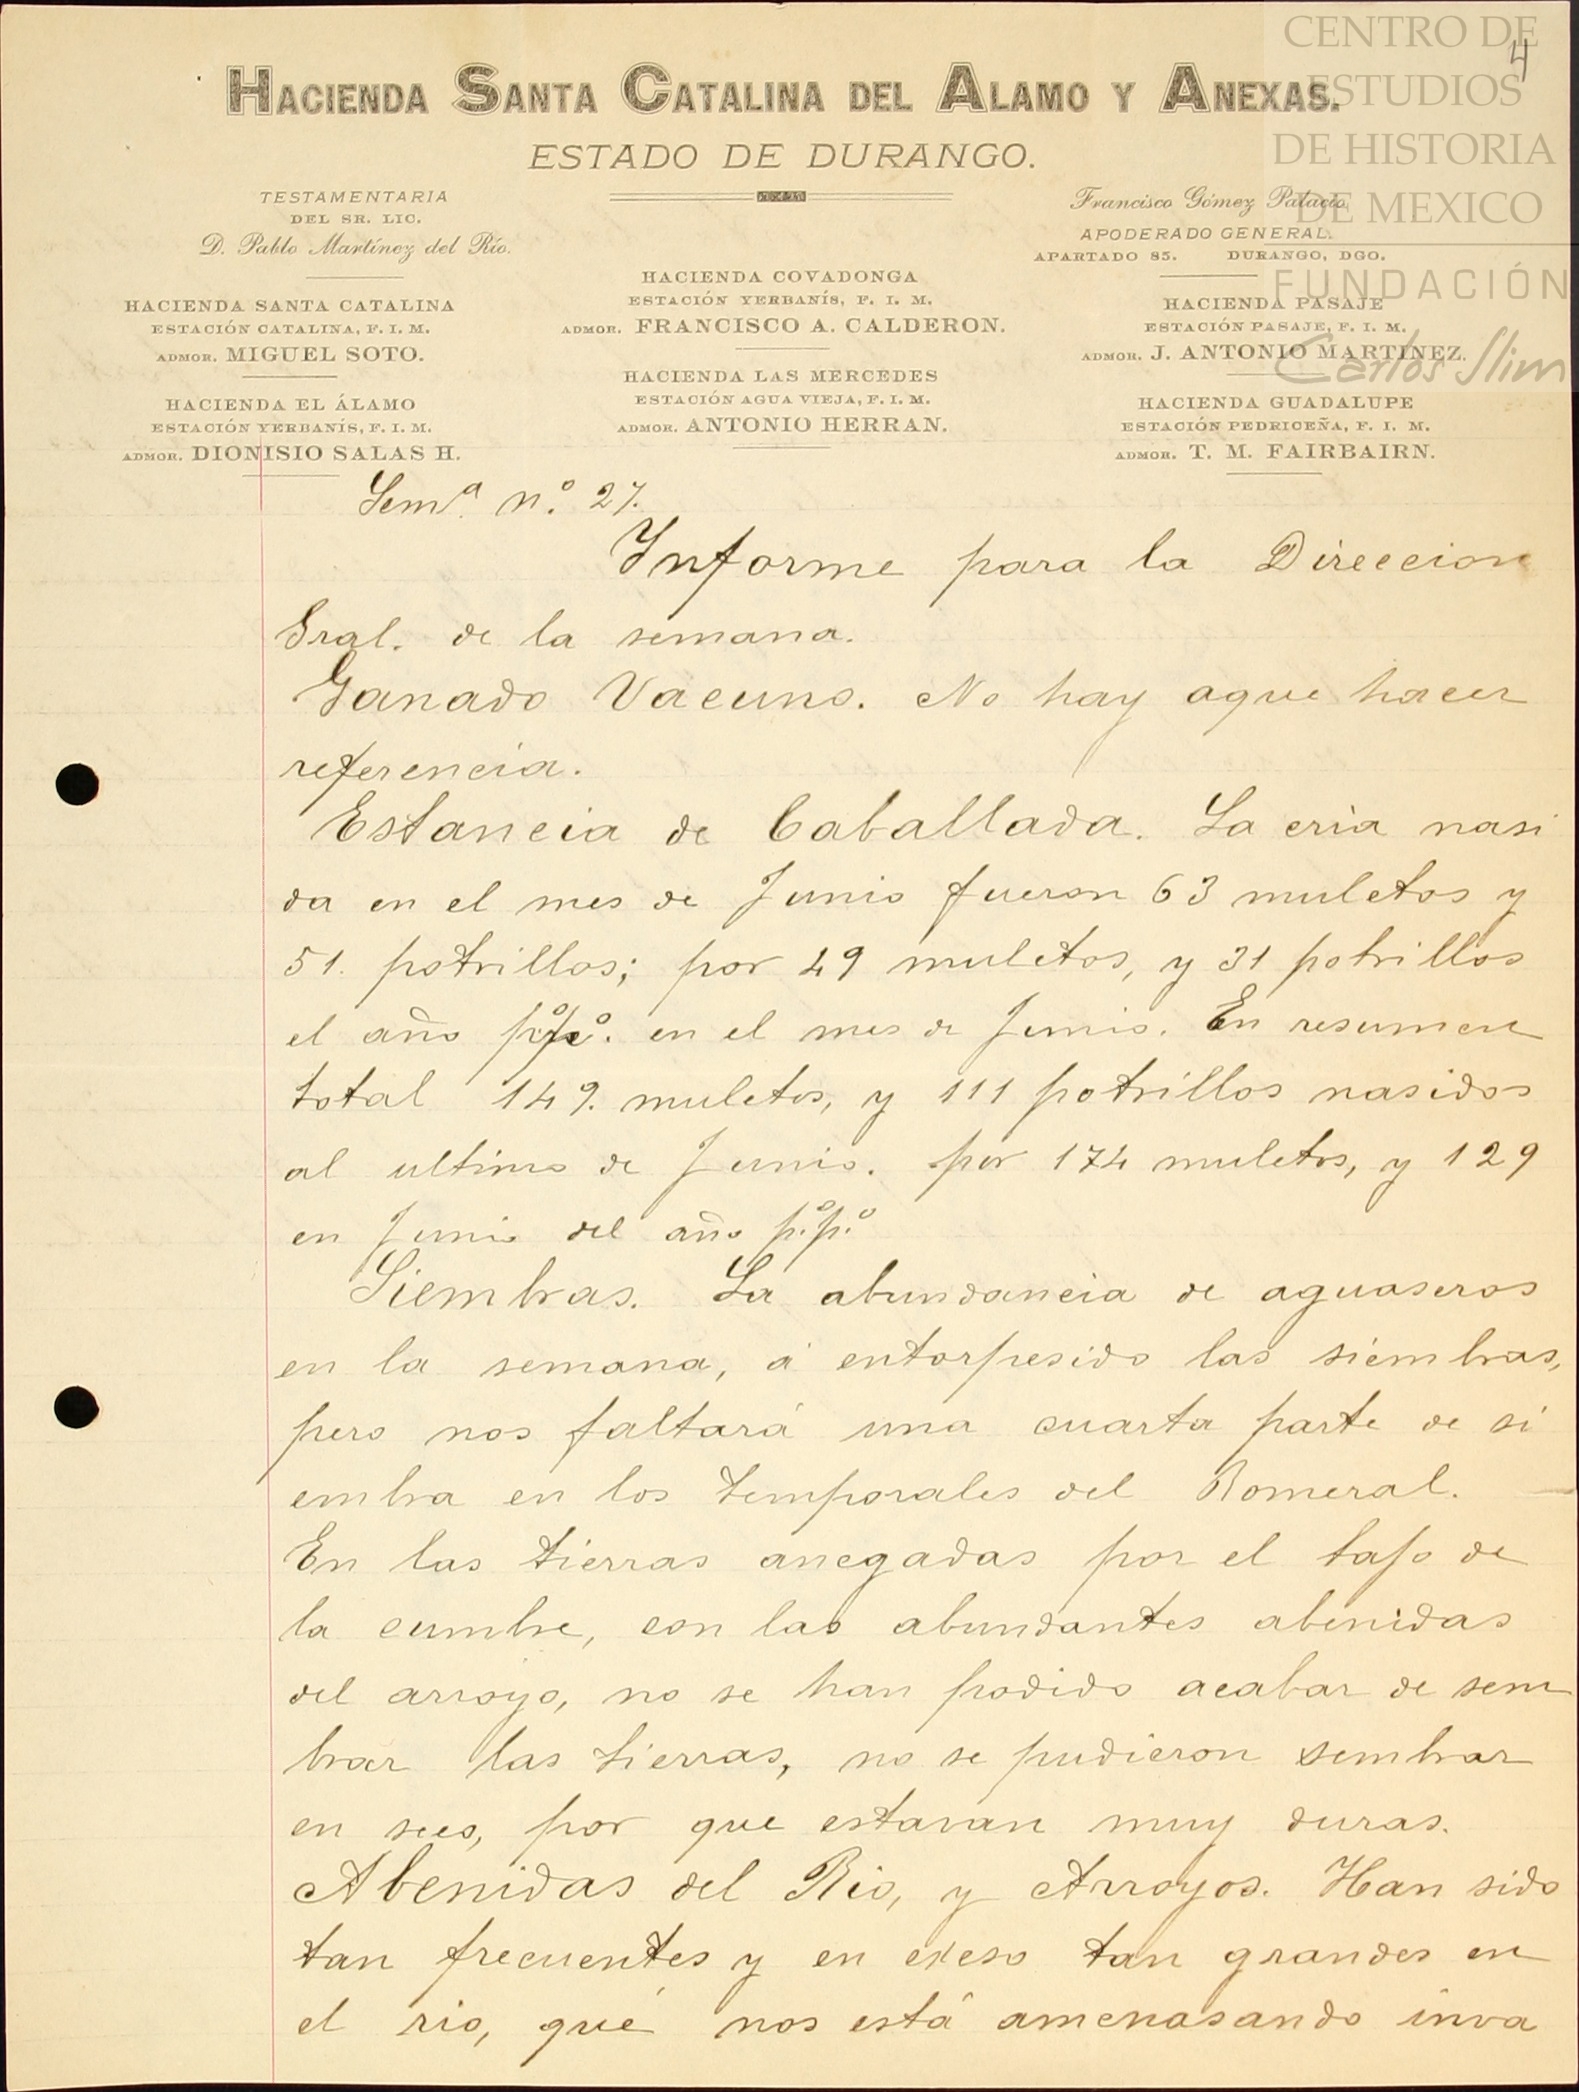 CENTRO DE
ESTUDIOS
DE HISTORIA
DE MEXICO
FUNDACIÓN
Carlos Slim
4
HACIENDA SANTA CATALINA DEL ALAMO Y ANEXAS.
ESTADO DE DURANGO.
TESTAMENTARIA
DEL SR. LIC.
D. Pablo Martínez del Río.
HACIENDA SANTA CATALINA
ESTACIÓN CATALINA, F. I. M.
ADMOR. MIGUEL SOTO.
HACIENDA EL ÁLAMO
ESTACIÓN YERBANÍS, F. I. M.
ADMOR. DIONISIO SALAS H.
HACIENDA COVADONGA
ESTACIÓN YERBANÍS, F. I. M.
ADMOR. FRANCISCO A. CALDERON.
HACIENDA LAS MERCEDES
ESTACIÓN AGUA VIEJA, F. I. M.
ADMOR. ANTONIO HERRAN.
Francisco Gómez Palacio,
APODERADO GENERAL.
APARTADO 85. DURANGO, DGO.
HACIENDA PASAJE
ESTACIÓN PASAJE, F. I. M.
ADMOR. J. ANTONIO MARTINEZ.
HACIENDA GUADALUPE
ESTACIÓN PEDRICEÑA, F. I. M.
ADMOR. T. M. FAIRBAIRN.
Semª. n.º 27.
Informe para la Direccion
Gral. de la semana.
Ganado Vacuno. No hay aque hacer
referencia.
Estancia de Caballada. La cria nasi
da en el mes de Junio fueron 63 muletos y
51. potrillos; por 49 muletos, y 31 potrillos
el año pº.pº. en el mes de Junio. En resumen
total 149. muletos, y 111 potrillos nasidos
al ultimo de Junio. por 174 muletos, y 129
en Junio del año p.ºp.º
Siembras. La abundancia de aguaseros
en la semana, á entorpesido las siembras,
pero nos faltará una cuarta parte de si
embra en los temporales del Romeral.
En las tierras anegadas por el tajo de
la cumbre, con las abundantes abenidas
del arroyo, no se han podido acabar de sem
brar las tierras, no se pudieron sembrar
en seco, por que estavan muy duras.
Abenidas del Rio, y Arroyos. Han sido
tan frecuentes y en exeso tan grandes en
el rio, qué nos está amenasando inva